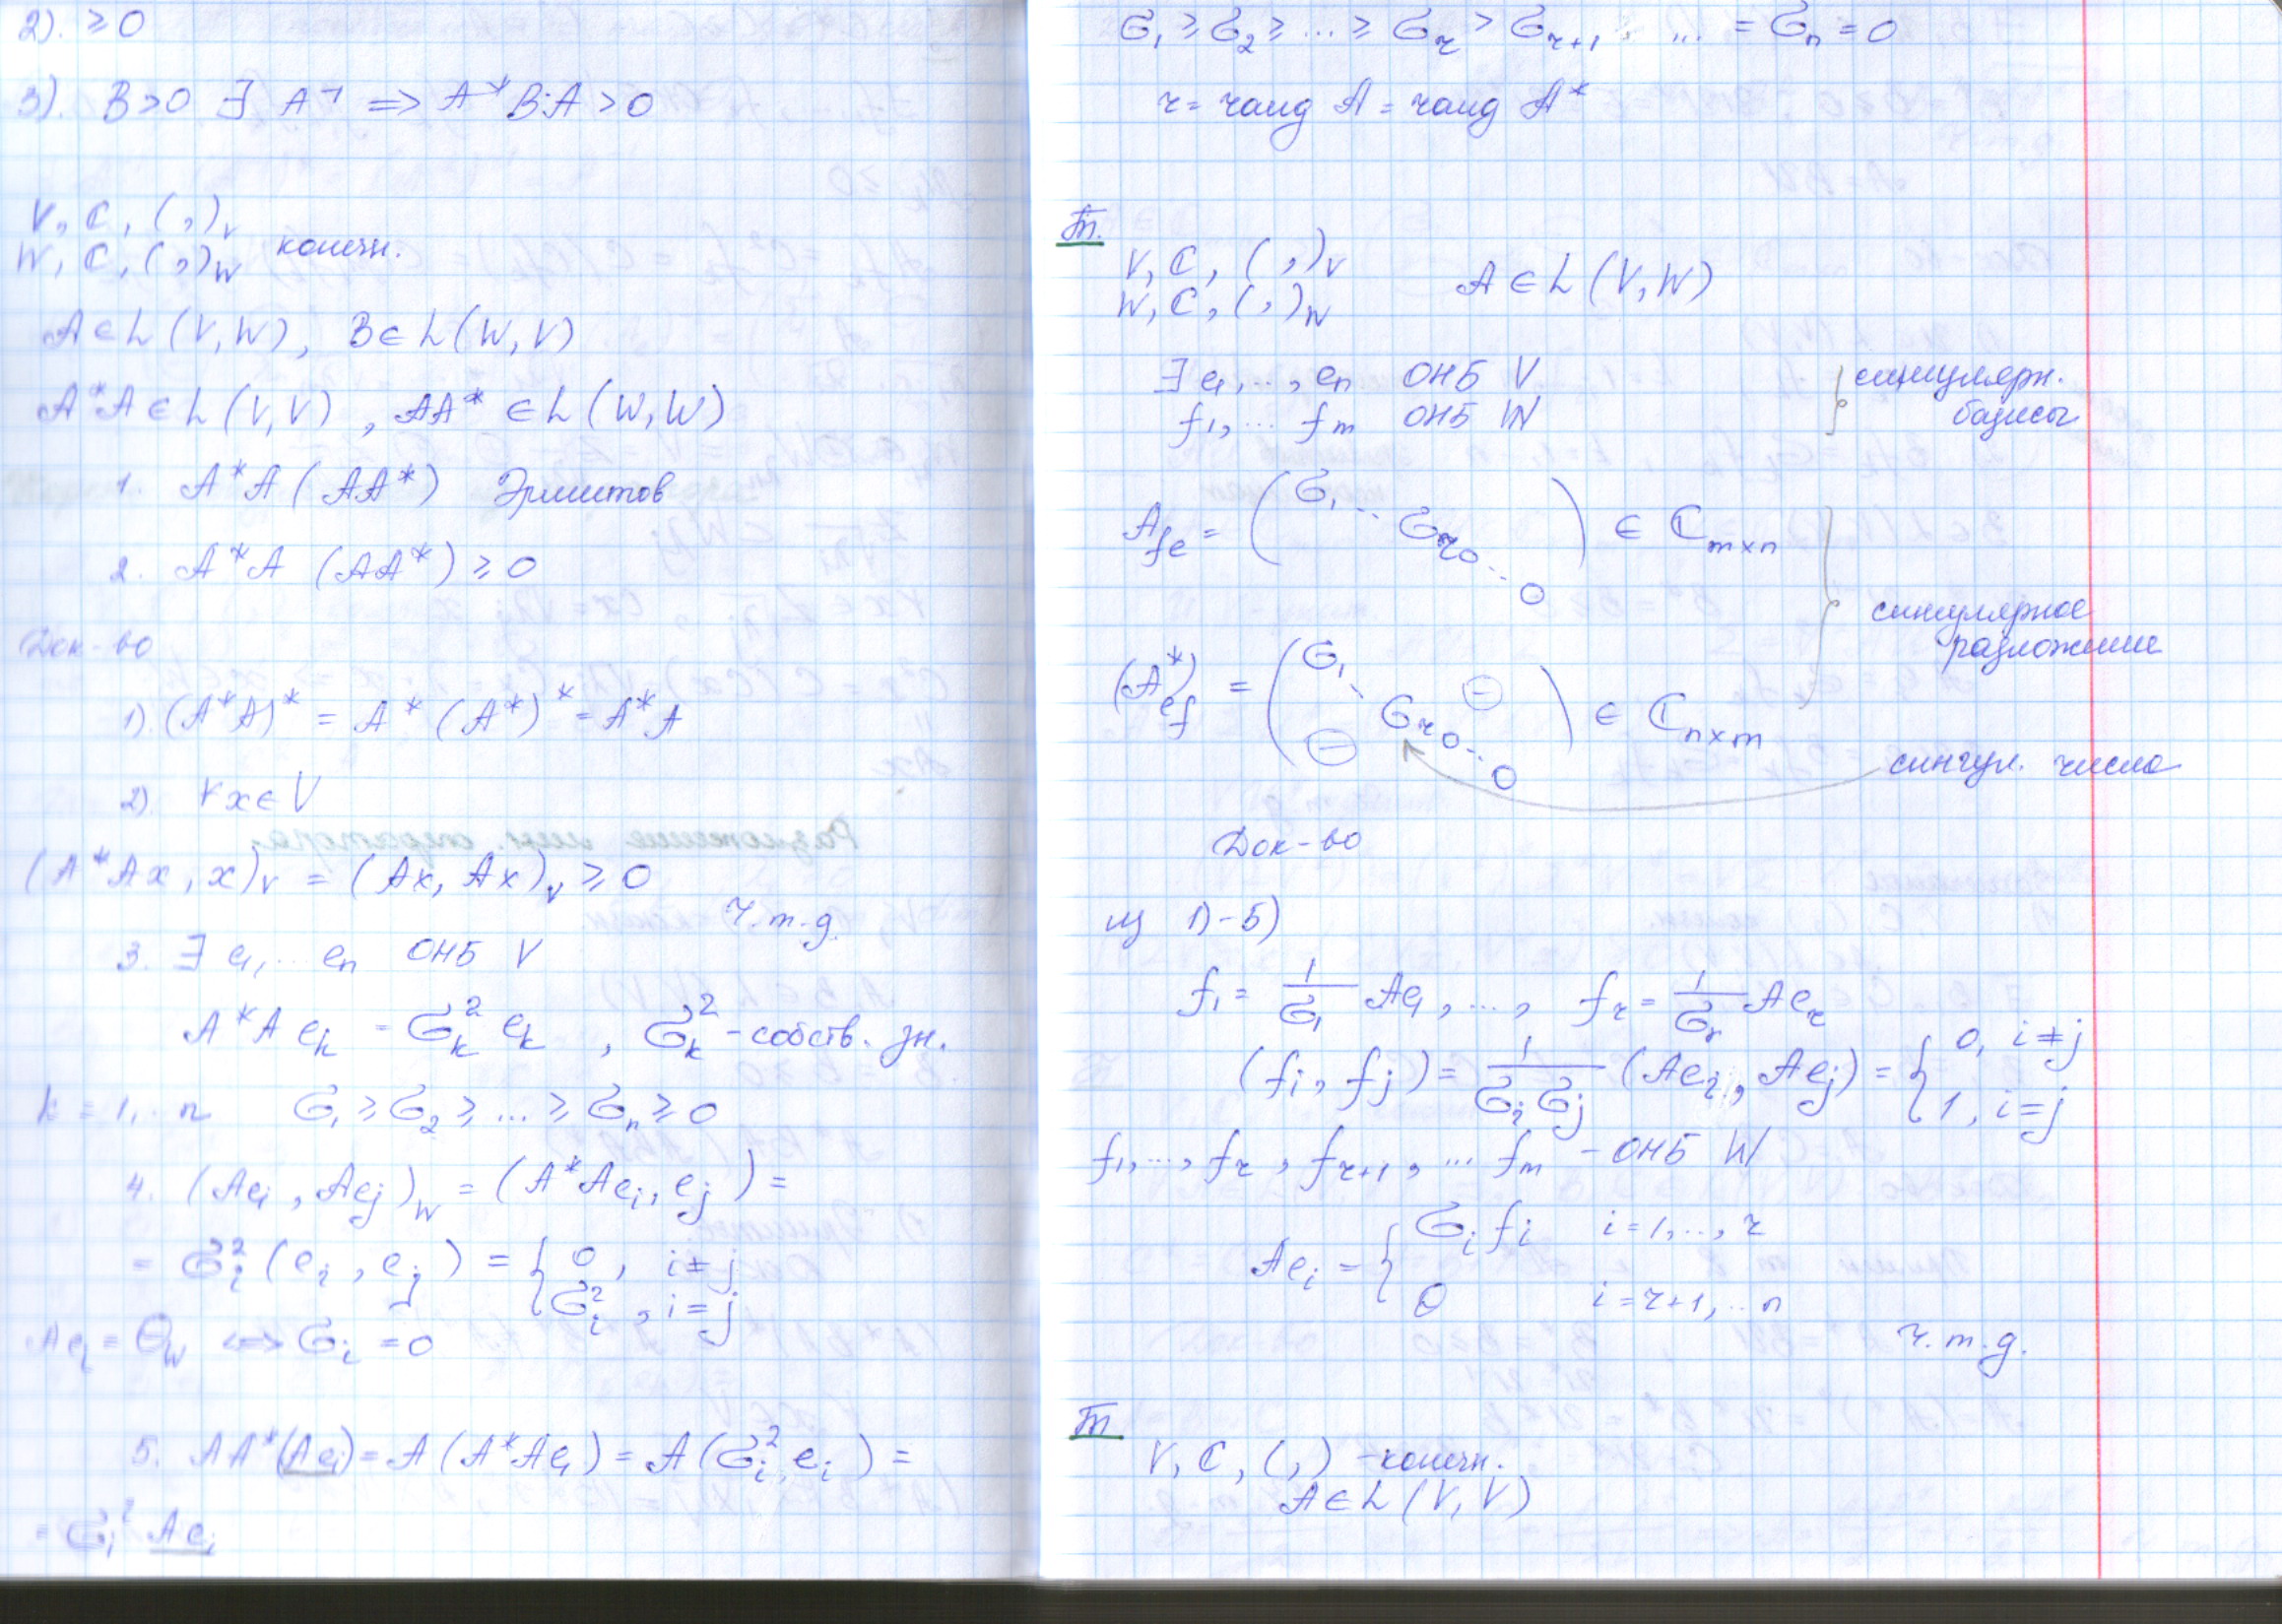 2). ≥ 0
3). B>0 ∃ A⁻¹ => A*BA > 0
V, ℂ, ( , )_V
W, ℂ, ( , )_W конечн.
A ∈ L (V, W), B ∈ L (W, V)
A*A ∈ L (V, V) , AA* ∈ L (W, W)
1. A*A (AA*) Эрмитов
2. A*A (AA*) ≥ 0
Док-во
1). (A*A)* = A* (A*)* = A*A
2). ∀x ∈ V
(A*Ax, x)_V = (Ax, Ax)_V ≥ 0
ч.т.д.
3. ∃ e₁, ... eₙ ОНБ V
A*A eₖ = σₖ² eₖ , σₖ² - собств. зн.
k = 1, .. n σ₁ ≥ σ₂ ≥ ... ≥ σₙ ≥ 0
4. (Aeᵢ, Aeⱼ)_W = (A*Aeᵢ, eⱼ) =
= σᵢ² (eᵢ, eⱼ) = { 0, i ≠ j
σᵢ², i = j
Aeᵢ = θ_W <=> σᵢ = 0
5. AA*(Aeᵢ) = A (A*Aeᵢ) = A (σᵢ² eᵢ) =
= σᵢ² Aeᵢ
σ₁ ≥ σ₂ ≥ ... ≥ σᵣ > σᵣ₊₁ = ... = σₙ = 0
r = rang A = rang A*
Т.
V, ℂ, ( , )_V
W, ℂ, ( , )_W A ∈ L (V, W)
∃ e₁, ..., eₙ ОНБ V } сингулярн.
f₁, ... fₘ ОНБ W базисы
A_fe = ( σ₁ ... σᵣ 0 ... 0 ) ∈ ℂ_m×n
сингулярное
разложение
(A*)_ef = ( σ₁ ... σᵣ 0 ... 0 ) ∈ ℂ_n×m
сингул. число
Док-во
из 1)-5)
f₁ = 1/σ₁ Ae₁, ..., fᵣ = 1/σᵣ Aeᵣ
(fᵢ, fⱼ) = 1/(σᵢσⱼ) (Aeᵢ, Aeⱼ) = { 0, i ≠ j
1, i = j
f₁, ..., fᵣ, fᵣ₊₁, ... fₘ - ОНБ W
Aeᵢ = { σᵢ fᵢ i = 1, .., r
0 i = r+1, .. n
ч.т.д.
Т
V, ℂ, ( , ) - конечн.
A ∈ L (V, V)